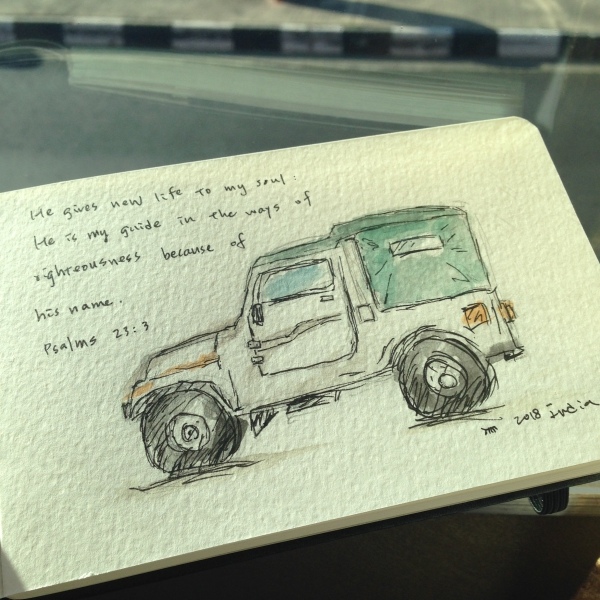 He gives new life to my soul:
He is my guide in the ways of
righteousness because of
his name.
Psalms 23:3
2018 India